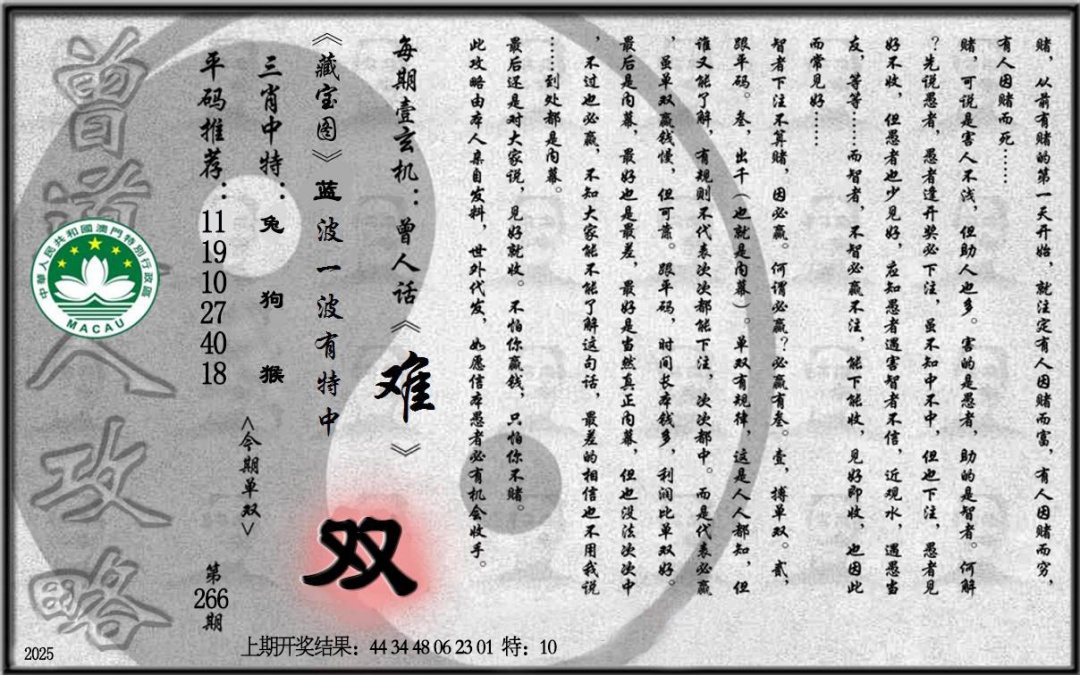 赌，从前有赌的第一天开始，就注定有人因赌而富，有人因赌而穷，
有人因赌而死……
赌，可说是害人不浅，但助人也多。害的是愚者，助的是智者。何解
？先说愚者，愚者逢开奖必下注，虽不知中不中，但也下注，愚者见
好不收，但愚者也少见好，应知愚者遇害智者不信，近观水，遇愚当
友，等等……而智者，不智必赢不注，能下能收，见好即收，也因此
而常见好……
智者下注不算赌，因必赢。何谓必赢？必赢有叁。壹，搏单双。贰，
跟单码。叁，出千（也就是内幕）。单双有规律，这是人人都知，但
谁又能了解，有规则不代表次次都能下注，次次都中。而是代表必赢
，虽单双赢钱慢，但可靠。跟单码，时间长本钱多，利润比单双好。
最后是内幕，最好也是最差，最好是当然真正内幕，但也没法次次中
，不过也必赢，不知大家能不能了解这句话，最差的相信也不用我说
……到处都是内幕。
最后还是对大家说，见好就收。不怕你赢钱，只怕你不赌。
此攻略由本人亲自发料，世外代发，如愿信本愚者必有机会收手。
每期壹玄机：曾人话《难》
《藏宝图》蓝波一波有特中
双
三肖中特：兔 狗 猴
<今期单双>
平码推荐：11 19 10 27 40 18
第266期
曾道人攻略
中華人民共和國澳門特別行政區
MACAU
2025
上期开奖结果：44 34 48 06 23 01 特：10